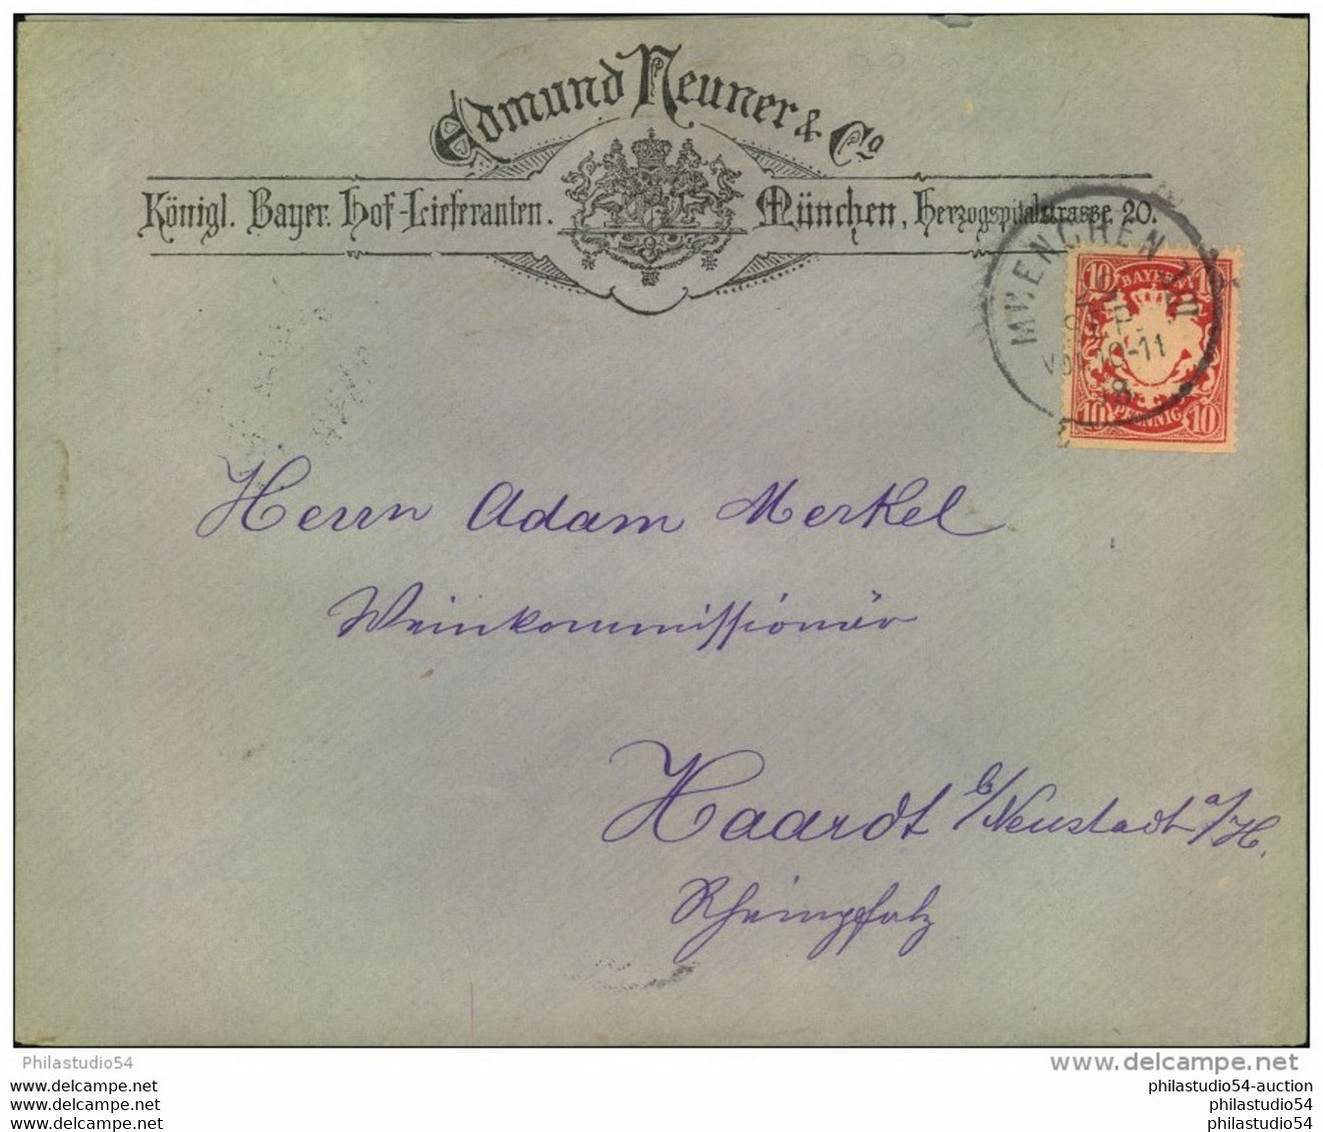 Edmund Neuner & Co
Königl. Bayer. Hof-Lieferanten. München, Herzogspitalstrasse, 20.
MUENCHEN
SEP.
10-11
10 BAYERN 10
10 PFENNIG 10
Herrn Adam Merkel
Weinkommissionär
Haardt b/Neustadt a/H.
Rheinpfalz
Philastudio54
www.delcampe.net
www.delcampe.net
www.delcampe.net
www.delcampe.net
philastudio54-auction
philastudio54
philastudio54